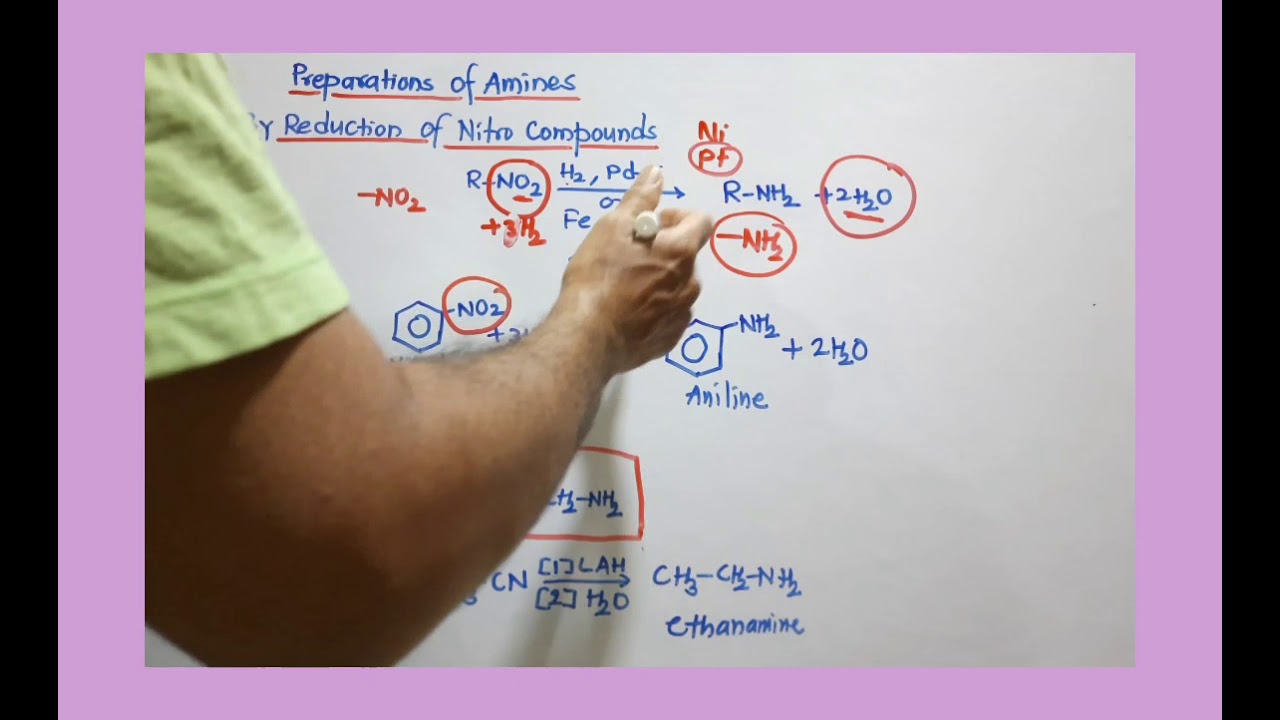 Preparations of Amines
By Reduction of Nitro Compounds
Ni
Pt
R-NO2 H2, Pd R-NH2 +2H2O
-NO2
+3H2 Fe -NH2
-NO2 NH2
+ 2H2O
Aniline
-NH2
CN [1] LAH CH3-CH2-NH2
[2] H2O
ethanamine